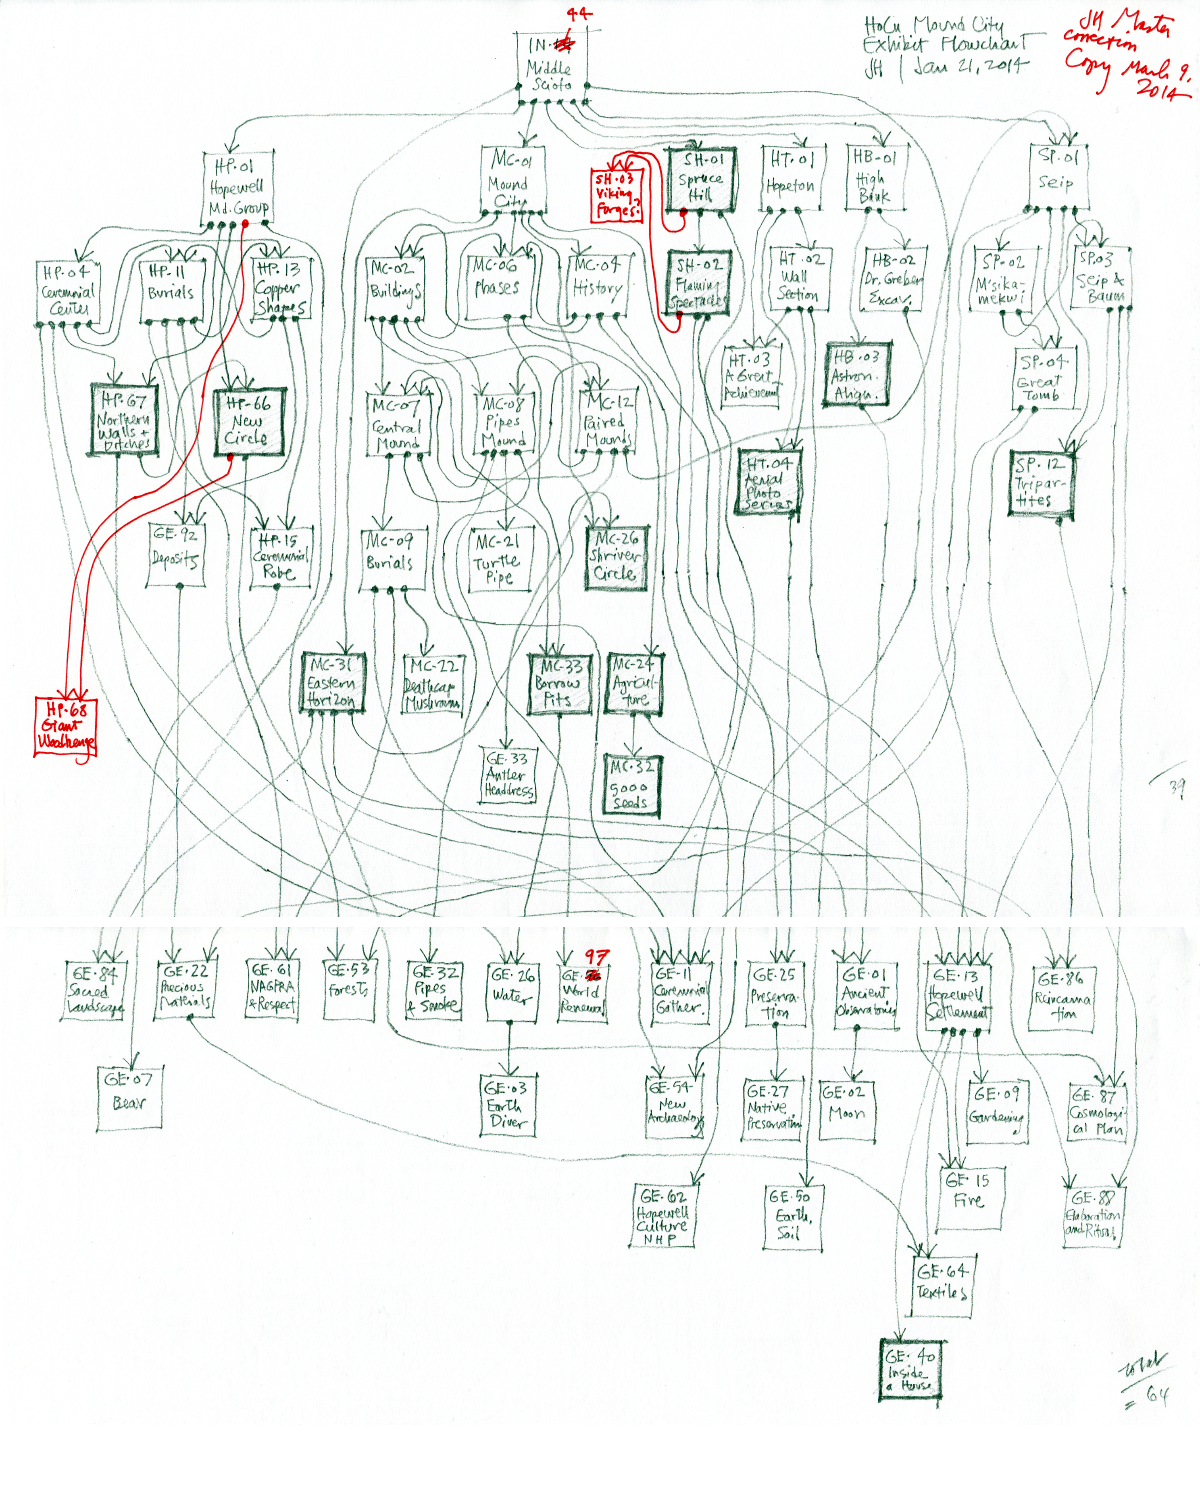 44
IN-
Middle
Scioto
HoCu Mound City
Exhibit Flowchart
JH | Jan 21, 2014
JH Master
correction
Copy March 9,
2014
HP-01
Hopewell
Md. Group
MC-01
Mound
City
SH-03
Viking
Forges?
SH-01
Spruce
Hill
HT-01
Hopeton
HB-01
High
Bank
SP-01
Seip
HP-04
Ceremonial
Center
HP-11
Burials
HP-13
Copper
Shapes
MC-02
Buildings
MC-06
Phases
MC-04
History
SH-02
Flaming
Spectacles
HT-02
Wall
Section
HB-02
Dr. Greber
Excav.
SP-02
M'sika-
mekwi
SP-03
Seip &
Baum
HP-67
Northern
Walls +
Ditches
HP-66
New
Circle
MC-07
Central
Mound
MC-08
Pipes
Mound
MC-12
Paired
Mounds
HT-03
A Great
Achievement
HB-03
Astron.
Align.
SP-04
Great
Tomb
HT-04
Aerial
Photo
Series
SP-12
Tripar-
tites
GE-92
Deposits
HP-15
Ceremonial
Robe
MC-09
Burials
MC-21
Turtle
Pipe
MC-26
Shriver
Circle
MC-31
Eastern
Horizon
MC-22
Deathcap
Mushroom
MC-33
Borrow
Pits
MC-24
Agricul-
ture
HP-68
Giant
Woodhenge
GE-33
Antler
Headdress
MC-32
5000
Seeds
39
GE-84
Sacred
Landscape
GE-22
Precious
Materials
GE-61
NAGPRA
& Respect
GE-53
Forests
GE-32
Pipes
& Smoke
GE-26
Water
97
GE-
World
Renewal
GE-11
Ceremonial
Gather.
GE-25
Preserva-
tion
GE-01
Ancient
Observatories
GE-13
Hopewell
Settlement
GE-86
Reincarna
tion
GE-07
Bear
GE-03
Earth
Diver
GE-54
New
Archaeology
GE-27
Native
Preservation
GE-02
Moon
GE-09
Gardening
GE-87
Cosmologi-
cal Plan
GE-62
Hopewell
Culture
NHP
GE-50
Earth,
Soil
GE-15
Fire
GE-88
Elaboration
and Ritual
GE-64
Textiles
GE-40
Inside
a House
total
= 64